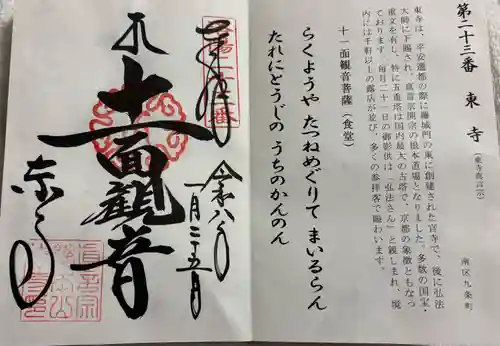 第二十三番 東寺 (東寺真言宗)
南区九条町
東寺は、平安遷都の際に羅城門の東に創建された官寺で、後に弘法
大師に下賜され、真言宗開宗の根本道場となりました。多数の国宝・
重文を有し、特に五重塔は国内最大の古塔で、京都の象徴ともなっ
ております。毎月二十一日の御影供は「弘法さん」と親しまれ、境
内には千軒以上の露店が並び、多くの参拝客で賑わいます。
十一面観音菩薩(食堂)
らくようや たつねめぐりて まいるらん
たれにとうじの うちのかんのん
奉拝
令和八年
一月二十五月
十一面観音
東寺